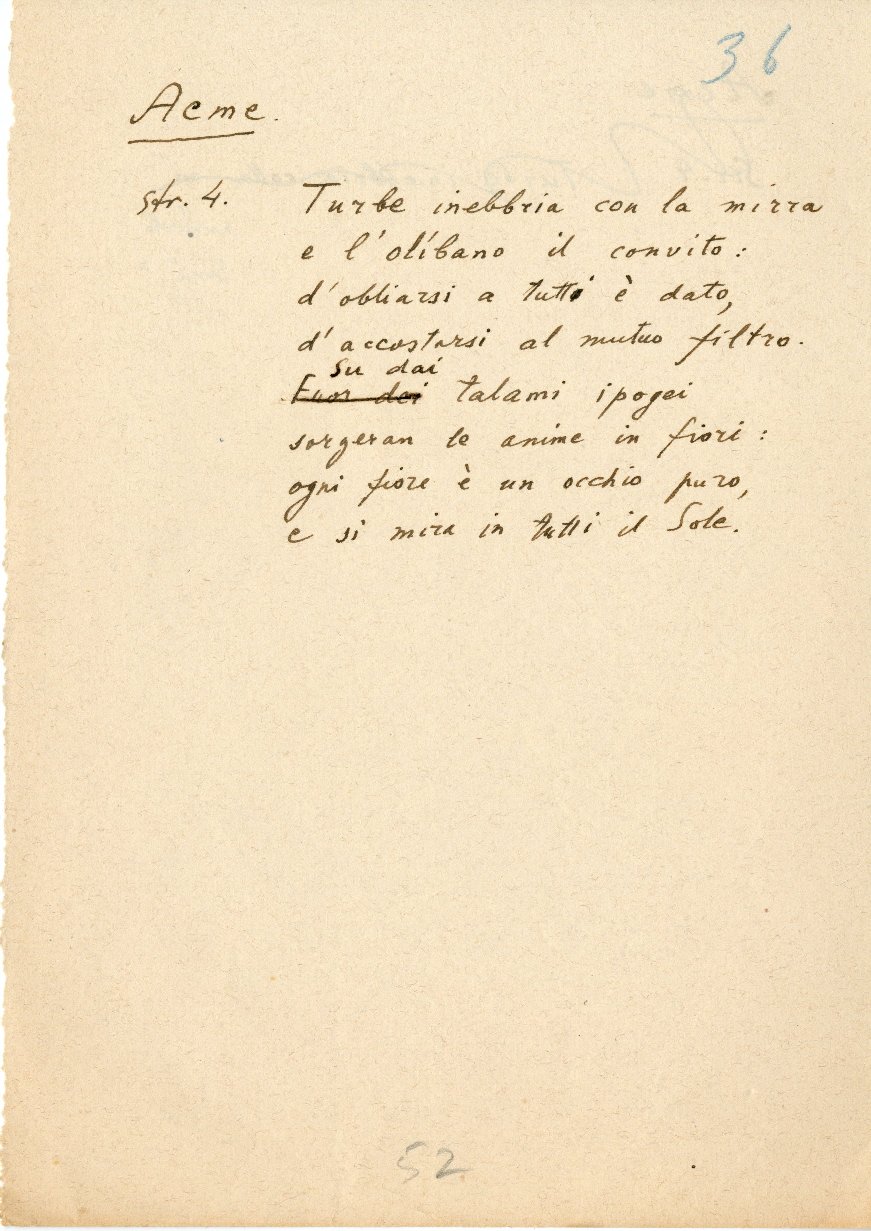 36
Acme.
str. 4. Turbe inebbria con la mirra
e l'olíbano il convito:
d'obliarsi a tutti è dato,
d'accostarsi al mutuo filtro.
Su dai
Fuor dei talami ipogei
sorgeran le anime in fiori:
ogni fiore è un occhio puro,
e si mira in tutti il Sole.
52